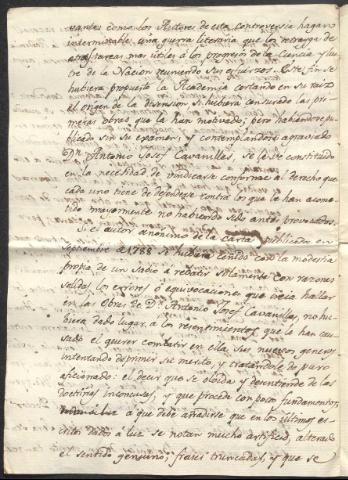 vantes como los Autores de esta controversia hagan
interminable una guerra literaria que los retraiga de
otras tareas mas utiles à los progresos de la Ciencia y lus-
tre de la Nacion reuniendo sus esfuerzos. Este fin se
hubiera propuesto la Academia cortando en su raiz
el origen de la division si hubiera censurado las pri-
meras obras que la han motivado; pero habiendose pu-
blicado sin su examen, y contemplandose agraviado
Dn. Antonio Josef Cavanilles, se ve constituido
en la necesidad de vindicarse conforme al derecho que
cada uno tiene de defenderse contra los que le han acome-
tido mayormente no habiendo sido antes provocados.
Si el autor anonimo de la Carta publicada en
Septiembre de 1788 se hubiera ceñido con la modestia
propia de un Sabio à rebatir solamente con razones
solidas los errores ò equivocaciones que creia hallar
en las Obras de Dn. Antonio Josef Cavanilles, no hu-
biera dado lugar à los resentimientos que le han cau-
sado el querer combatir en ella sus nuevos generos,
intentando deprimir su merito, y tratandole de puro
aficionado: el decir que se olvida y desentiende de las
doctrinas inconcusas, y que procede con pocos fundamentos,
à que debe añadirse que en los ultimos es-
critos dados à luz se notan mucho artificio, alterado
el sentido genuino, frases truncadas, y que se